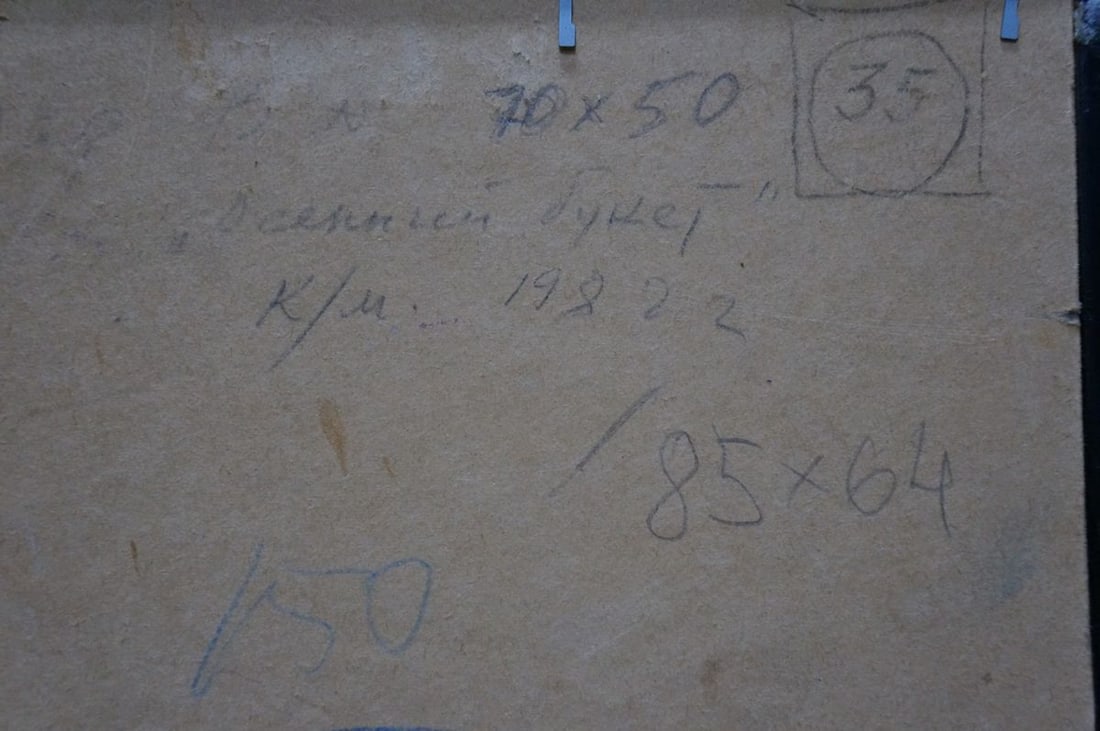 70 x 50
35
"Осенний букет"
К/м. 1982 г
85 x 64
150